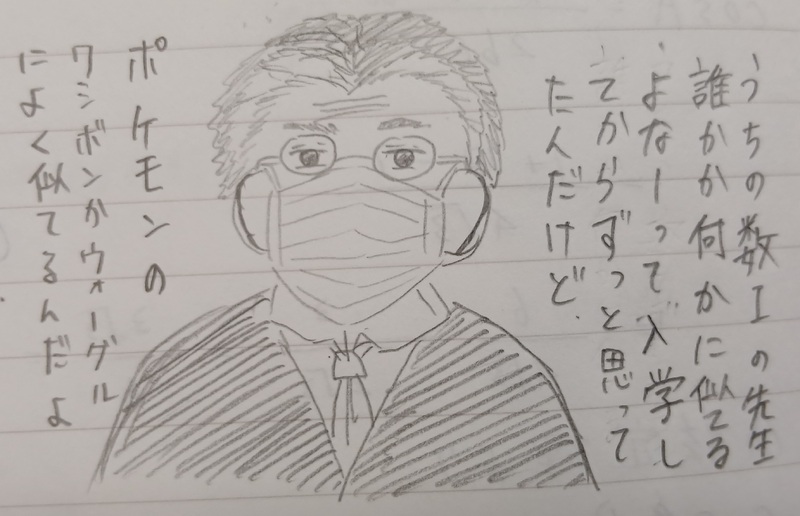 うちの数Iの先生
誰かか何かに似てる
よなーって入学し
てからずっと思って
たんだけど、
ポケモンの
ワシボンかウォーグル
によく似てるんだよ